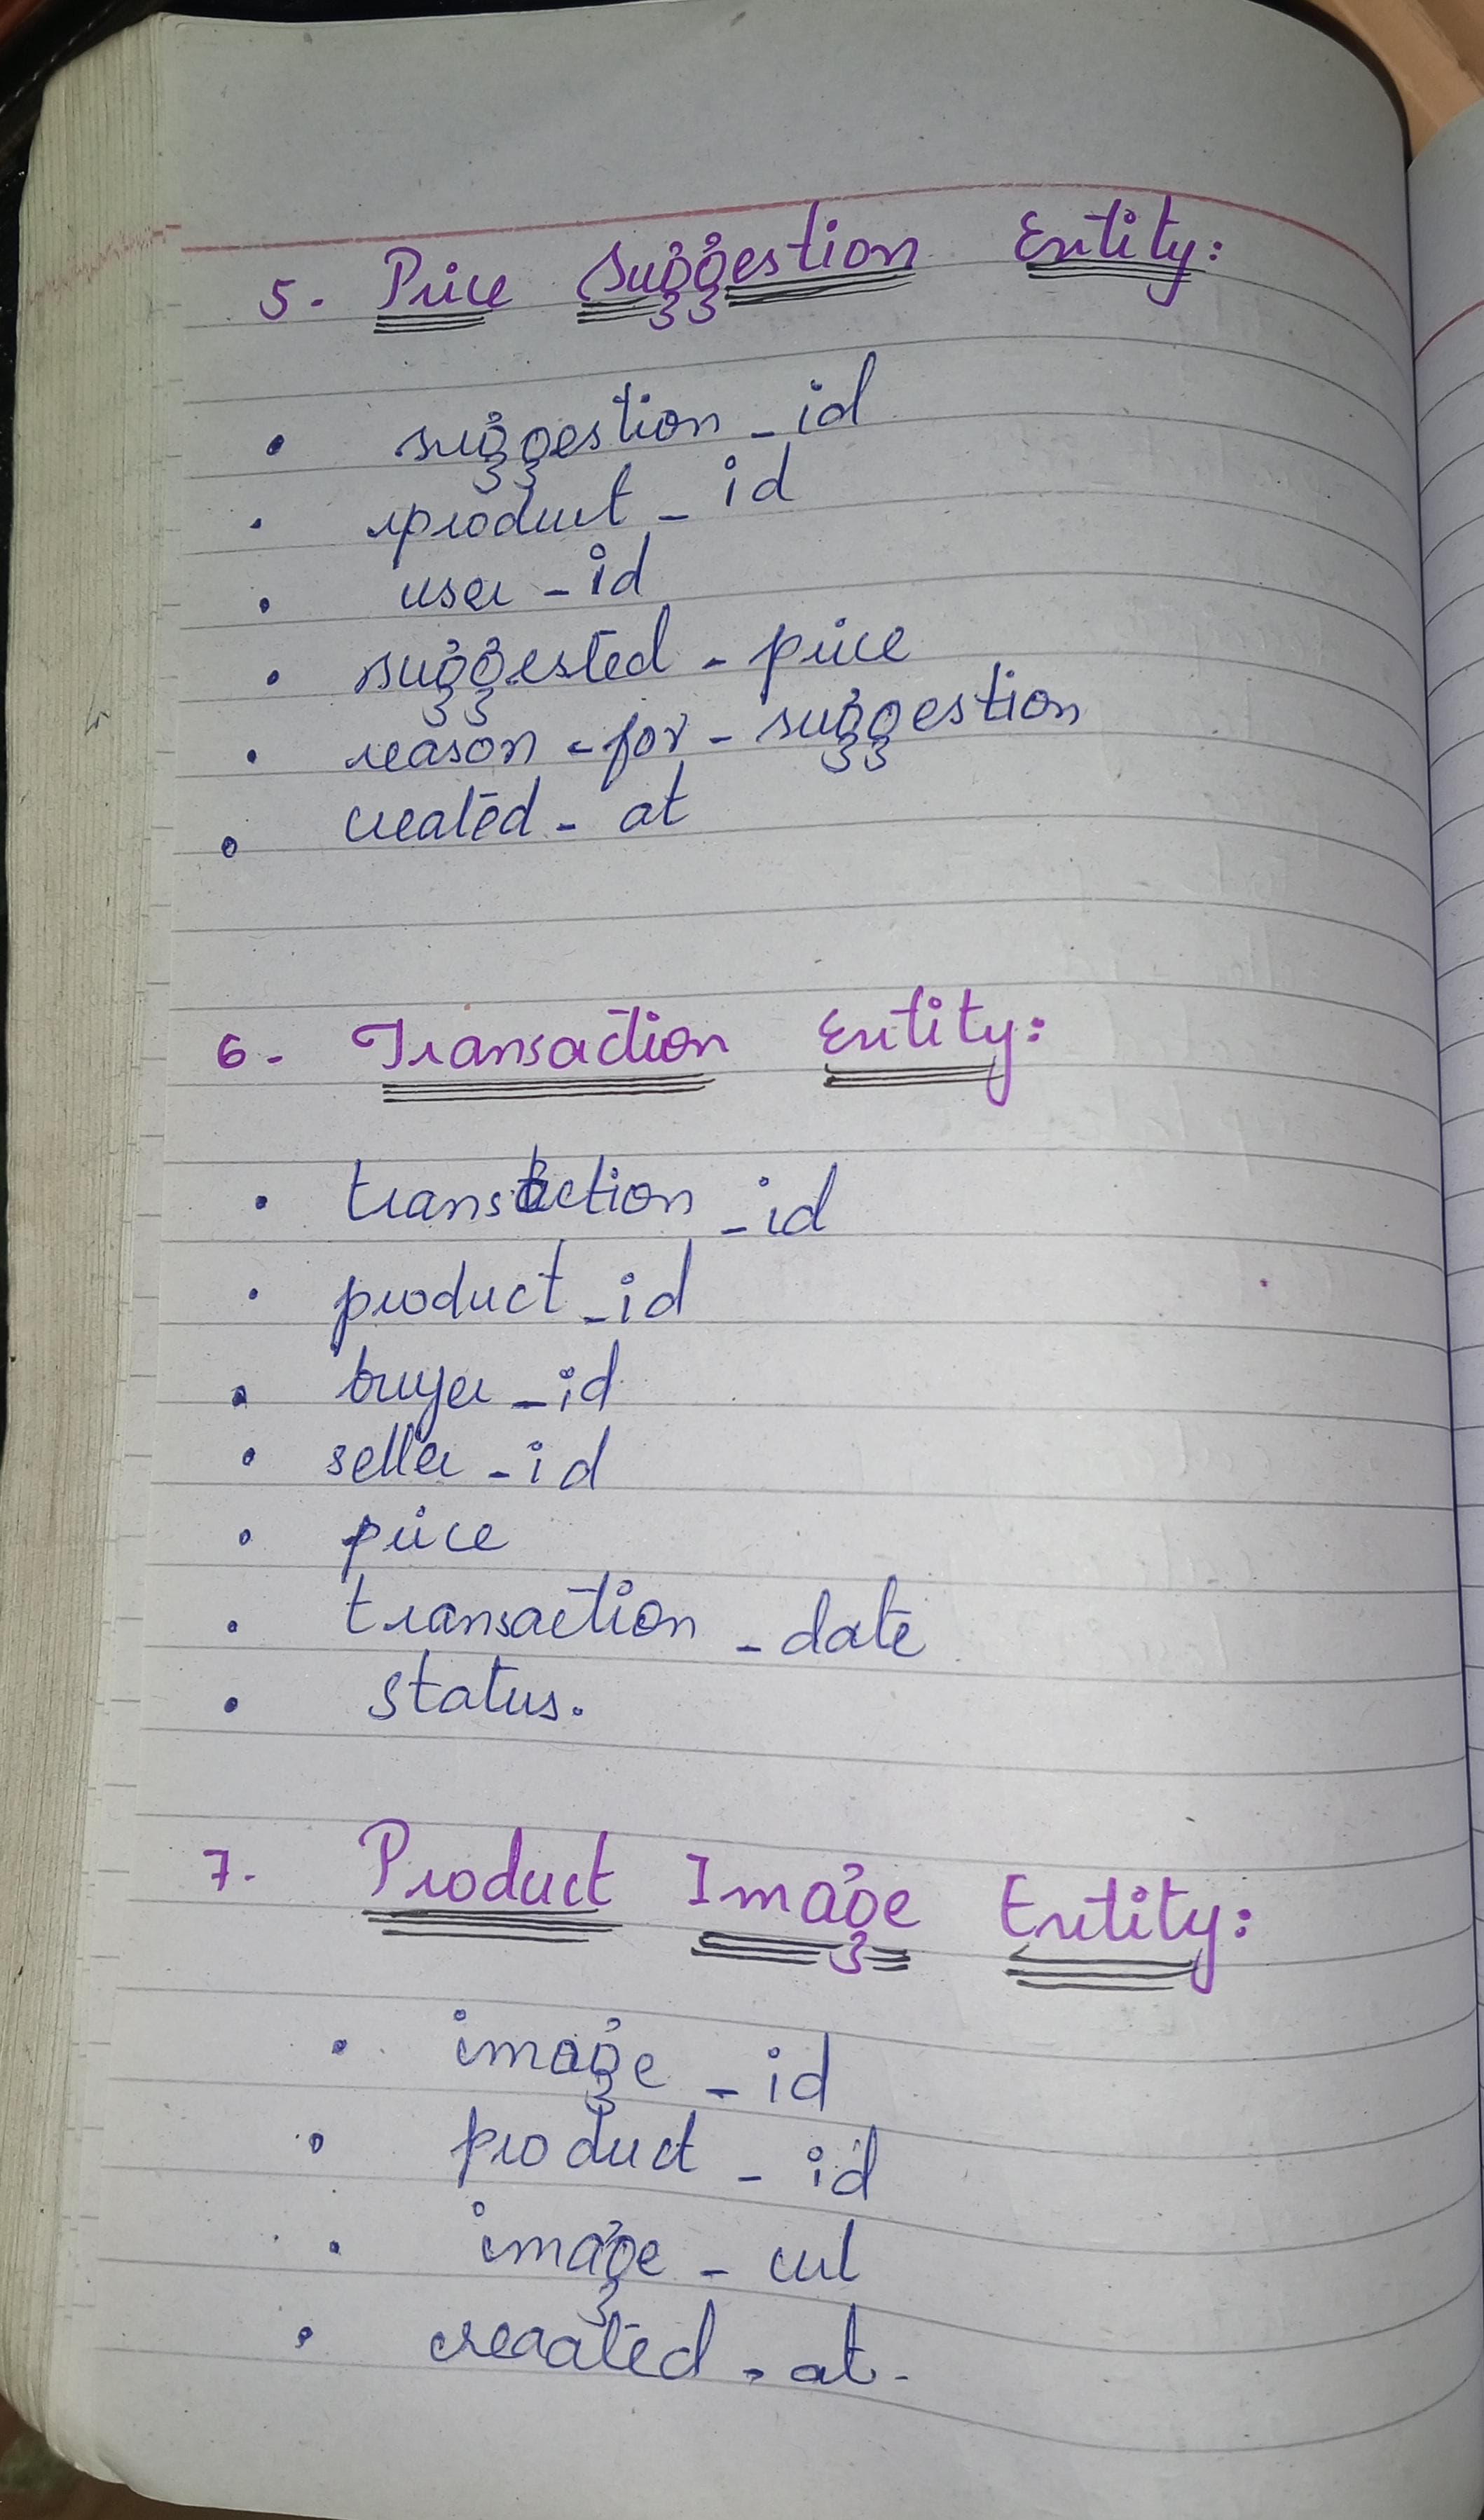 5. Price Suggestion Entity:
• suggestion_id
• product_id
• user_id
• suggested_price
• reason-for-suggestion
• created_at
6. Transaction Entity:
• transaction_id
• product_id
• buyer_id
• seller_id
• price
• transaction_date
• status.
7. Product Image Entity:
• image_id
• product_id
• image_url
• creaated_at.